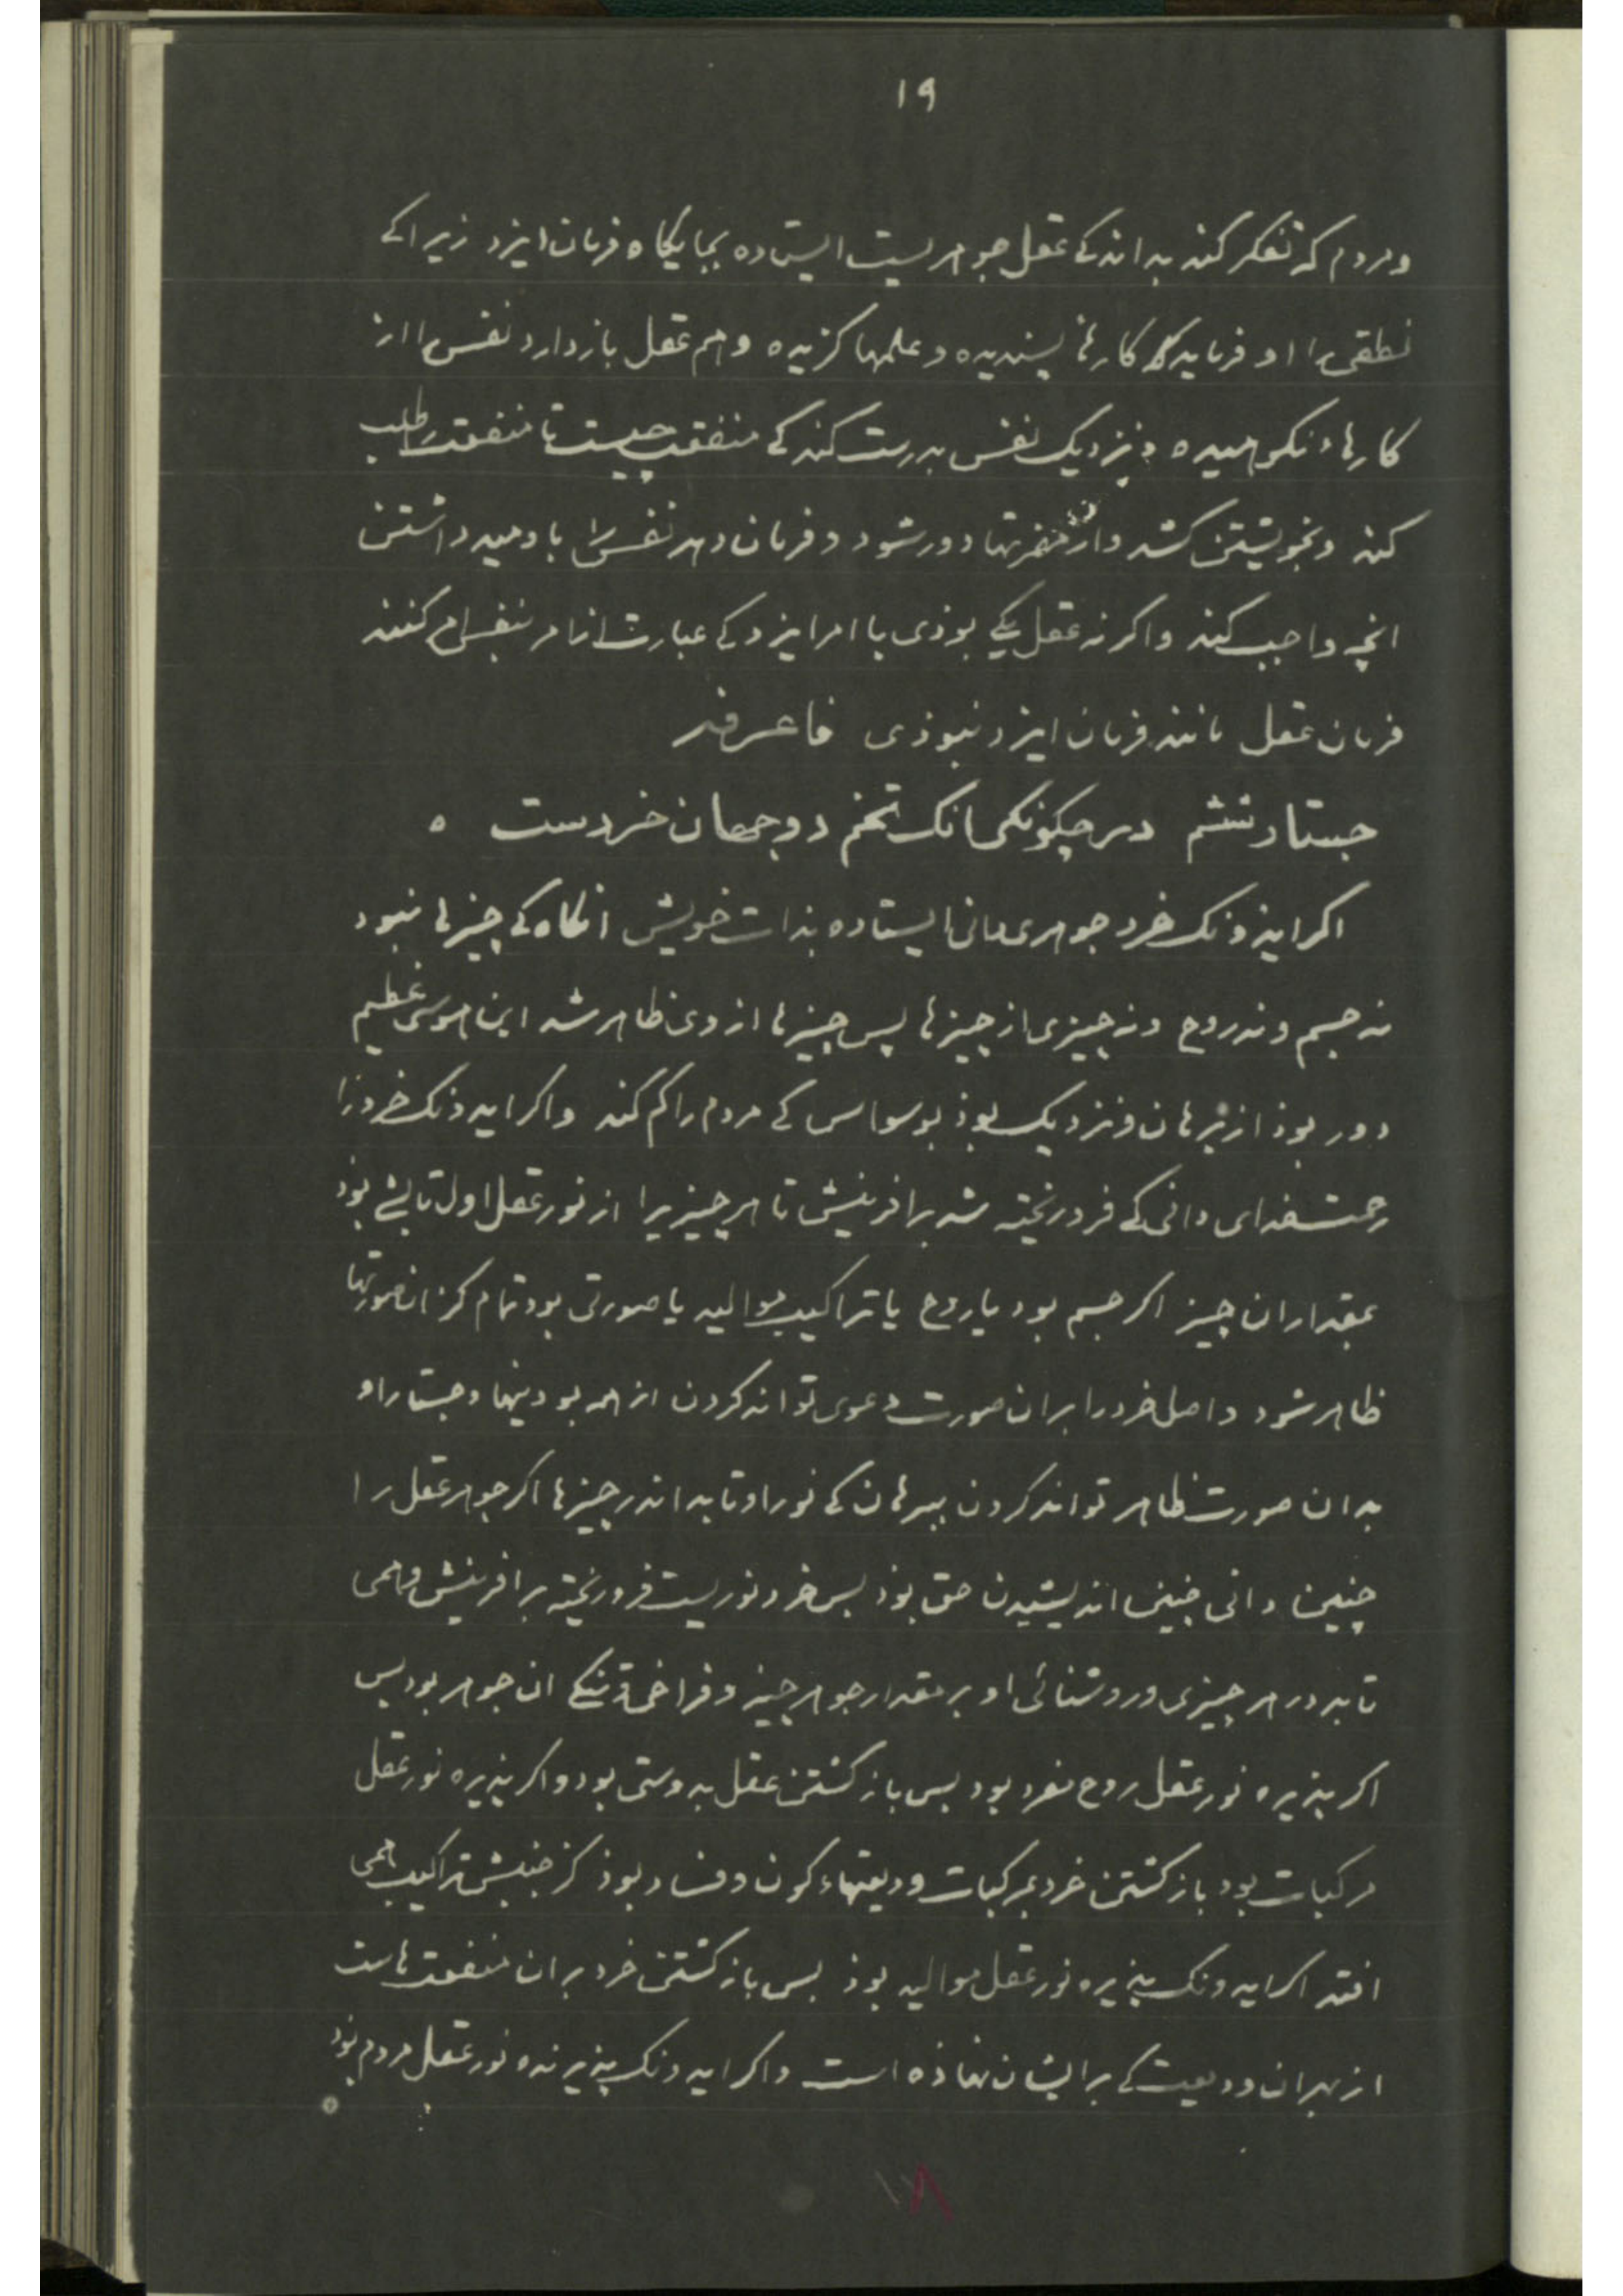 ۱۹
ومردم که تفکر کند بداند کے عقل جوهریست ایستاده بجایکاه فرمان ایزد زیرا کے
نطقی را او فرماید کارهاء پسندیده وعلمها کزیده وهم عقل بازدارد نفس را از
کارهاء نکوهیده ونزدیک نفس بدرست کند کے منفعت چیست تا منفعت را طلب
کند وبخویشتن کشد واز مضرتها دور شود وفرمان دهد نفس را باومید داشتن
انچه واجب کند واکر نه عقل یکے بوذی با امر ایزد کے عبارت از امر بنفس کنند
فرمان عقل مانند فرمان ایزد نبوذی فاعرفه
جستار ششم در چکونکی انک تخم دو جهان خردست ٥
اکر ایذونک خرد جوهری دانی ایستاده بذات خویش انکاه کے چیزها نبود
نه جسم ونه روح ونه چیزی از چیزها پس چیزها از وی ظاهر شد این هوسی عظیم
دور بوذ از برهان ونزدیک بوذ بوسواس کے مردم را کم کند واکر ایدونک خرد را
رحمت خدای دانی کے فرو ریخته شد بر افرینش تا هر چیزیرا از نور عقل اول تابشے بوذ
بمقدار ان چیز اکر جسم بود یا روح یا تراکیب موالید یا صورتی بود تمام کز ان صورتها
ظاهر شود واصل خرد را بران صورت دعوی تواند کردن از همه بودینها وجستار او
بدان صورت ظاهر تواند کردن ببرهان کے نور او تابد اندر چیزها اکر جوهر عقل را
چنین دانی چنین اندیشیدن حق بوذ بس خرد نوریست فرو ریخته بر افرینش وهمی
تابد در هر چیزی وروشنائی او بر مقدار جوهر چیز وفراخی وتنکے ان جوهر بود بس
اکر پذیره نور عقل روح مفرد بود بس باز کشتن عقل بدوستی بود واکر پذیره نور عقل
مرکبات بود باز کشتن خرد بمرکبات ودیعتهاء کون وفساد بوذ کز جنبش تراکیب همی
افتد اکر ایدونک پذیره نور عقل موالید بوذ بس باز کشتن خرد بر ان منفعتهاست
از بهر ان ودیعت کے بر ایشان نهاذه است واکر ایدونک پذیرنده نور عقل مردم بود
۱۸